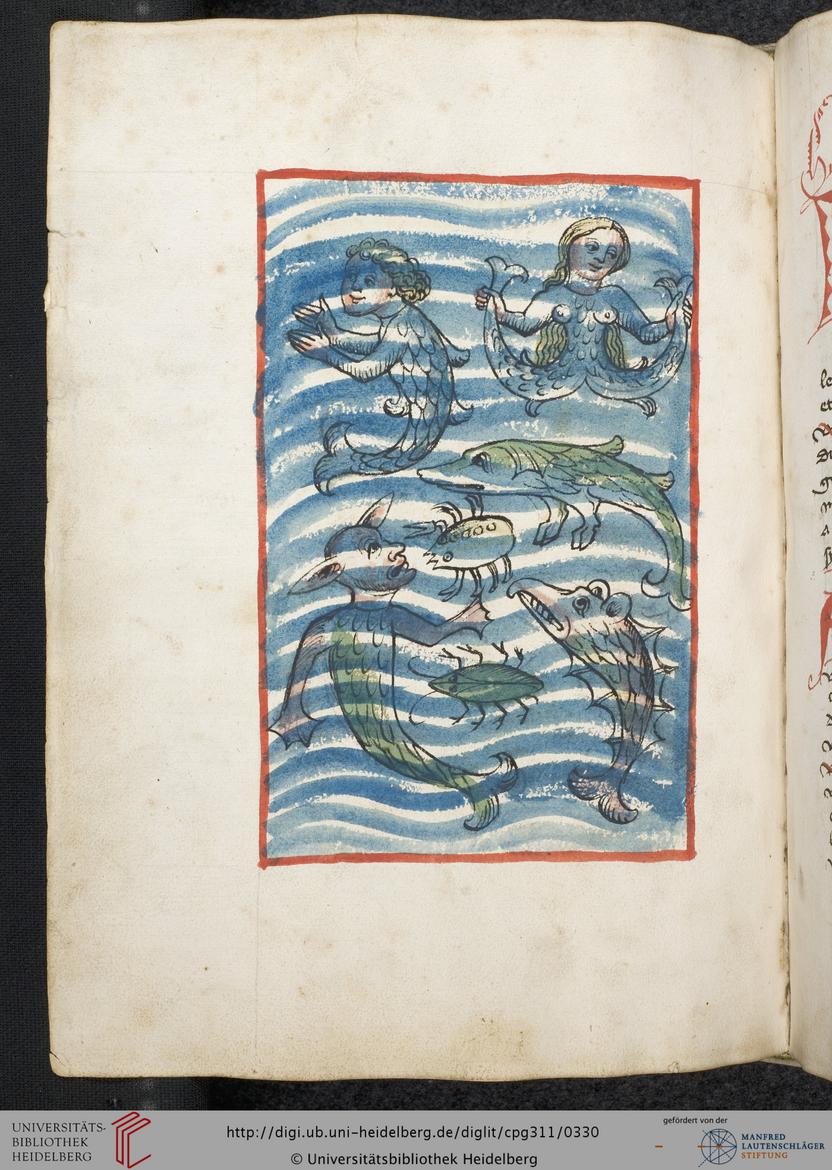 UNIVERSITÄTS-
BIBLIOTHEK
HEIDELBERG
http://digi.ub.uni-heidelberg.de/diglit/cpg311/0330
© Universitätsbibliothek Heidelberg
gefördert von der
MANFRED
LAUTENSCHLÄGER
STIFTUNG